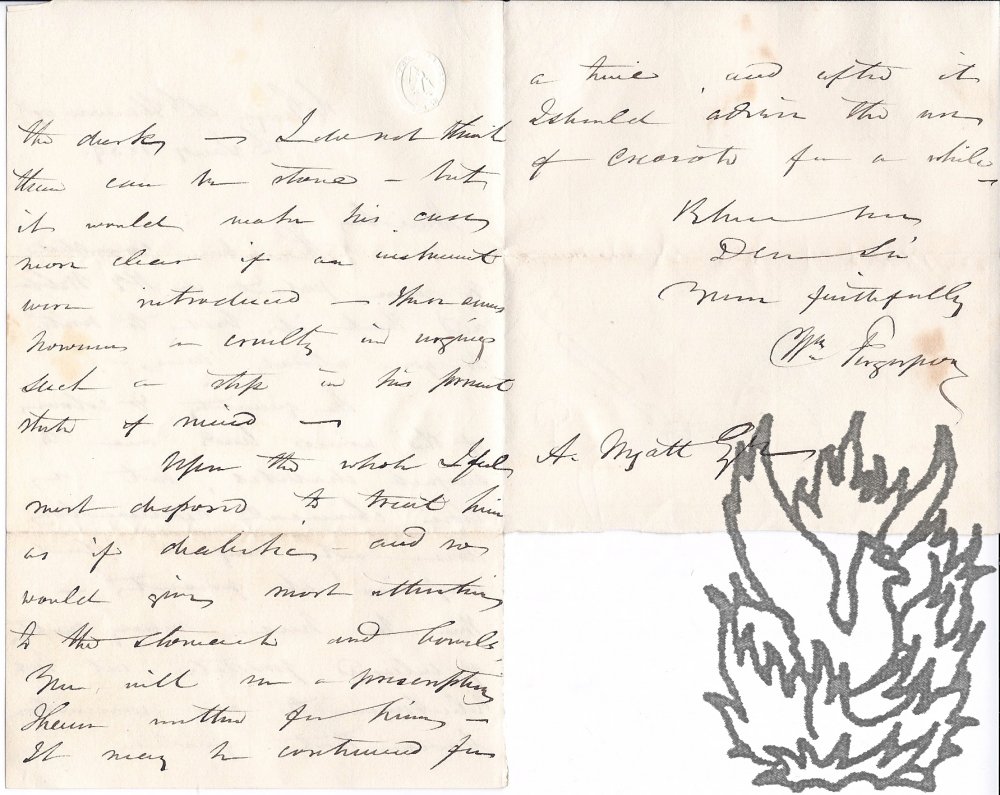 the dark — I do not think
there can be stone – but
it would make his case
more clear if an instrument
were introduced — there seems
however a cruelty in urging
such a step in his present
state of mind —
Upon the whole I feel
most disposed to treat him
as if diabetic – and so
would give most attention
to the stomach and bowels
You will see a prescription
I have written for him –
It may be continued for
a time and after it
I should advise the use
of Creosote for a while –
Believe me
Dear Sir
Yours faithfully
Wm Fergusson
A. Wyatt Esqr